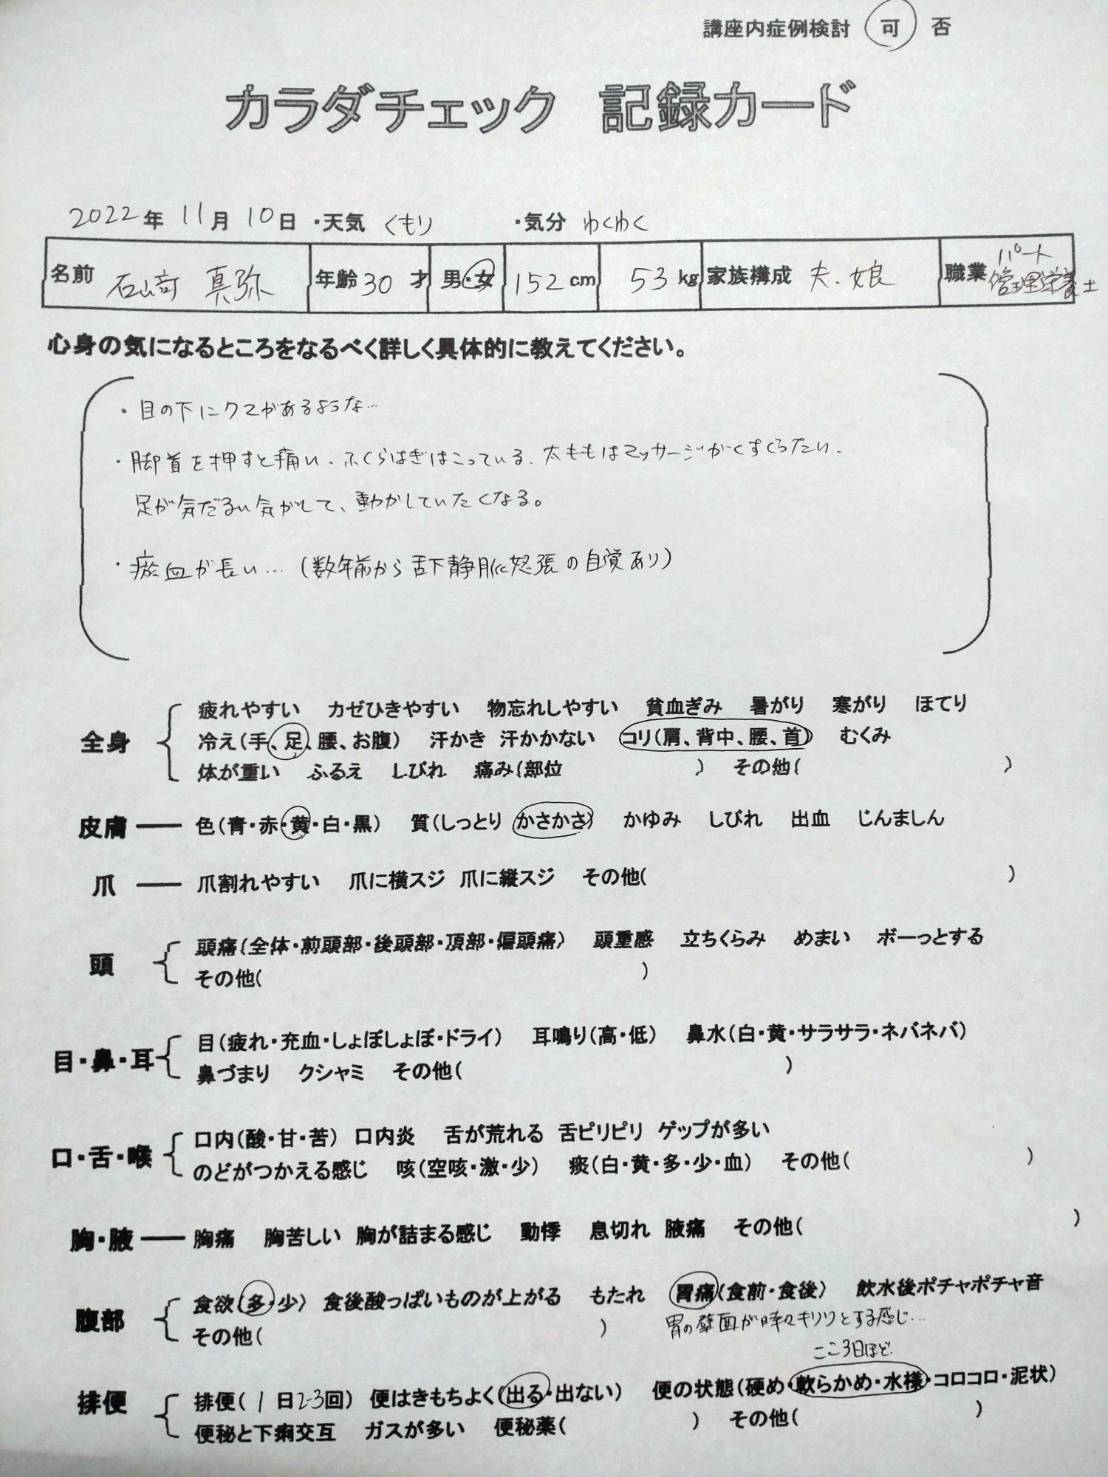 講座内症例検討 可 否
カラダチェック 記録カード
2022年 11月 10日 ・天気 くもり ・気分 わくわく
名前 石嵜 真弥 年齢 30 才 男・女 152 cm 53 kg 家族構成 夫、娘 職業 パート 管理栄養士
心身の気になるところをなるべく詳しく具体的に教えてください。
・目の下にクマがあるような…
・脚首を押すと痛い、ふくらはぎはこっている、太ももはマッサージがくすぐったい、
足が気だるい気がして、動かしていたくなる。
・瘀血が長い…(数年前から舌下静脈怒張の自覚あり)
全身 疲れやすい カゼひきやすい 物忘れしやすい 貧血ぎみ 暑がり 寒がり ほてり
冷え(手、足、腰、お腹) 汗かき 汗かかない コリ(肩、背中、腰、首) むくみ
体が重い ふるえ しびれ 痛み(部位 ) その他( )
皮膚 色(青・赤・黄・白・黒) 質(しっとり かさかさ) かゆみ しびれ 出血 じんましん
爪 爪割れやすい 爪に横スジ 爪に縦スジ その他( )
頭 頭痛(全体・前頭部・後頭部・頂部・偏頭痛) 頭重感 立ちくらみ めまい ボーっとする
その他( )
目・鼻・耳 目(疲れ・充血・しょぼしょぼ・ドライ) 耳鳴り(高・低) 鼻水(白・黄・サラサラ・ネバネバ)
鼻づまり クシャミ その他( )
口・舌・喉 口内(酸・甘・苦) 口内炎 舌が荒れる 舌ピリピリ ゲップが多い
のどがつかえる感じ 咳(空咳・激・少) 痰(白・黄・多・少・血) その他( )
胸・腋 胸痛 胸苦しい 胸が詰まる感じ 動悸 息切れ 腋痛 その他( )
腹部 食欲(多・少) 食後酸っぱいものが上がる もたれ 胃痛(食前・食後) 飲水後ポチャポチャ音
その他( ) 胃の壁面が時々キリリとする感じ…
ここ3日ほど
排便 排便(1日2-3回) 便はきもちよく(出る・出ない) 便の状態(硬め・軟らかめ・水様・コロコロ・泥状)
便秘と下痢交互 ガスが多い 便秘薬( ) その他( )